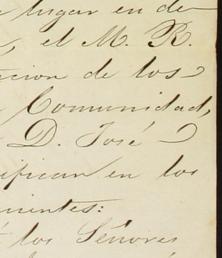 lugar en de
, el M. R.
cion de los
Comunidad,
D. José
ifican en los
uientes:
los Señores